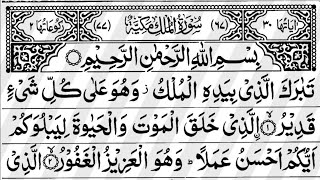 اٰيَاتُهَا ٣٠ (٦٧) سُوْرَةُ الْمُلْكِ مَكِّيَّةٌ (٧٧) رُكُوْعَاتُهَا ٢
بِسْمِ اللّٰهِ الرَّحْمٰنِ الرَّحِيْمِ
تَبٰرَكَ الَّذِيْ بِيَدِهِ الْمُلْكُ ز وَهُوَ عَلٰى كُلِّ شَيْءٍ
قَدِيْرُ ۨ ﴿١﴾ الَّذِيْ خَلَقَ الْمَوْتَ وَالْحَيٰوةَ لِيَبْلُوَكُمْ
اَيُّكُمْ اَحْسَنُ عَمَلًا ؕ وَهُوَ الْعَزِيْزُ الْغَفُوْرُ ﴿٢﴾ الَّذِيْ